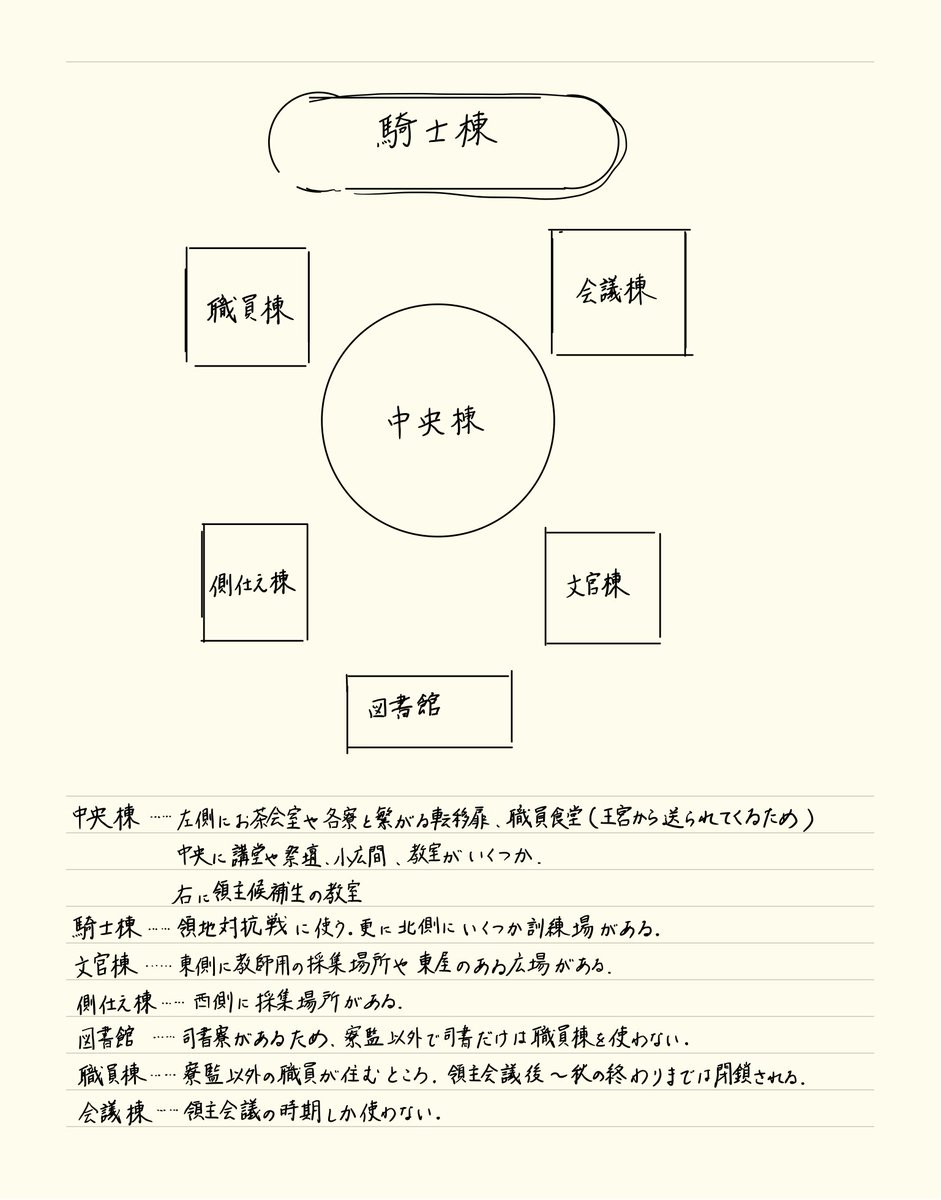 騎士棟
職員棟
会議棟
中央棟
側仕え棟
文官棟
図書館
中央棟……左側にお茶会室や各寮と繋がる転移扉、職員食堂(王宮から送られてくるため)
中央に講堂や祭壇、小広間、教室がいくつか.
右に領主候補生の教室
騎士棟……領地対抗戦に使う.更に北側にいくつか訓練場がある.
文官棟……東側に教師用の採集場所や東屋のある広場がある.
側仕え棟……西側に採集場所がある.
図書館……司書寮があるため、寮監以外で司書だけは職員棟を使わない.
職員棟……寮監以外の職員が住むところ.領主会議後～秋の終わりまでは閉鎖される.
会議棟……領主会議の時期しか使わない.